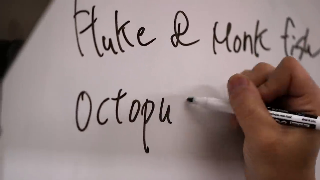 Fluke & Monk fish
Octopu